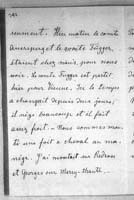 sumant. Hier matin le comte
Auersperg et le comte Fugger,
étaient chez nous, pour nous
voir. Le comte Fugger est partit
hier pour Vienne. Ici le temps
a changait depuis deux jours,
il neige beaucoup et il fait
assez froit. - Nous sommes mon-
té une foit a cheval au ma-
nège. J'ai montait un Pedran
et Georges sur Merry-